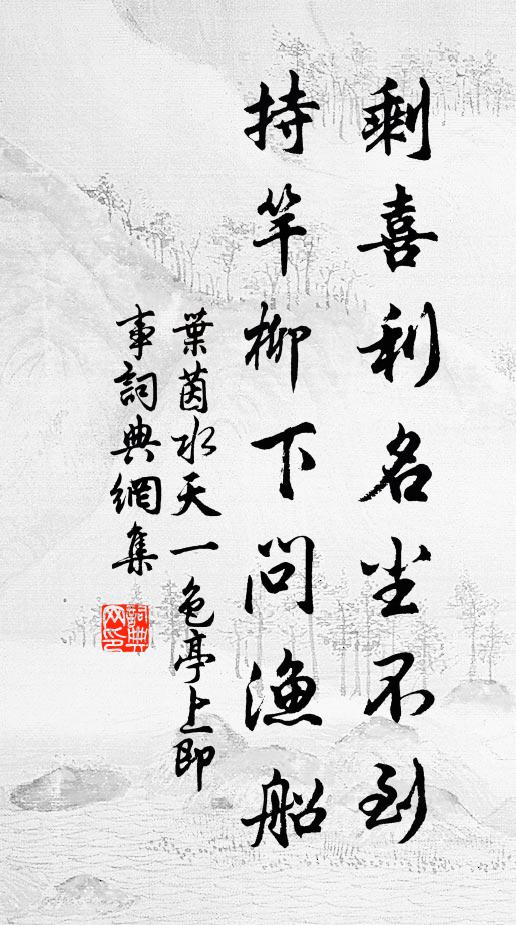 剩喜利名尘不到
持竿柳下問漁船
葉茵水天一色亭上即
事詞典網集
詞典網印